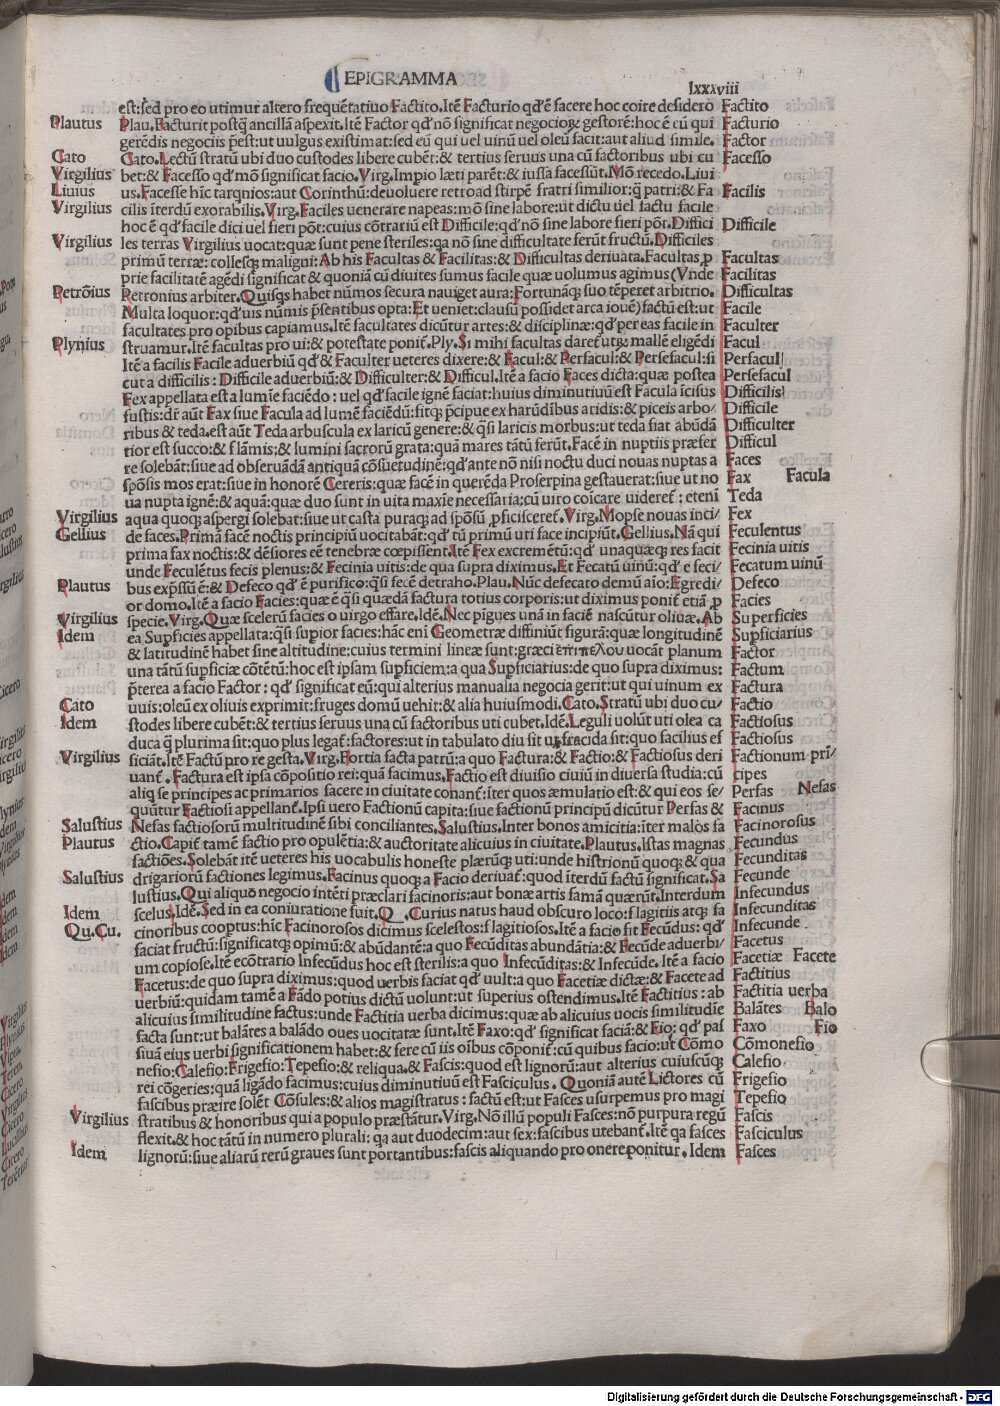 EPIGRAMMA
lxxxviii
est: sed pro eo utimur altero frequẽtatiuo Factito. Itẽ Facturio qđ ẽ facere hoc coire desidero Factito
Plautus Plau. Facturit postq̃ ancillã aspexit. Itẽ Factor qđ nõ significat negocioꝝ gestorẽ: hoc ẽ cũ qui Facturio
gerẽdis negociis p̃est: ut uulgus existimat: sed eũ qui uel uinũ uel oleũ facit: aut aliud simile. Factor
Cato Cato. Lectũ stratũ ubi duo custodes libere cubẽt: & tertius seruus una cũ factoribus ubi cu Facesso
Virgilius bet: & Facesso qđ mõ significat facio. Virg. Impio læti parẽt: & iussa facessũt. Mõ recedo. Liui
Liuius us. Facesse hĩc tarqnios: aut Corinthũ: deuoluere retro ad stirpẽ fratri similior: q̃ patri: & Fa Facilis
Virgilius cilis ĩterdũ exorabilis. Virg. Faciles uenerare napeas: mõ sine labore: ut dictu uel factu facile
hoc ẽ qđ facile dici uel fieri põt: cuius cõtrariũ est Difficile: qđ nõ sine labore fieri põt. Diffici Difficile
Virgilius les terras Virgilius uocat: quæ sunt pene steriles: qa nõ sine difficultate ferũt fructũ. Difficiles
primũ terræ: collesq; maligni: Ab his Facultas & Facilitas: & Difficultas deriuata. Facultas ꝓ Facultas
prie facilitatẽ agẽdi significat & quoniã cũ diuites sumus facile quæ uolumus agimus (Vnde Facilitas
Petrõius Petronius arbiter. Quisqs habet nũmos secura nauiget aura: Fortunãq; suo tẽperet arbitrio. Difficultas
Multa loquor: qđ uis nũmis p̃sentibus opta: Et ueniet: clausũ possidet arca iouẽ) factũ est: ut Facile
facultates pro opibus capiamus. Itẽ facultates dicũtur artes: & disciplinæ: qđ per eas facile in Faculter
Plynius struamur. Itẽ facultas pro ui: & potestate ponit̃. Ply. Si mihi facultas daret̃ utꝝ mallẽ eligẽdi Facul
Itẽ a facilis Facile aduerbiũ qđ & Faculter ueteres dixere: & Facul: & Perfacul: & Persefacul: si Perfacul
cut a difficilis: Difficile aduerbiũ: & Difficulter: & Difficul. Itẽ a facio Faces dicta: quæ postea Persefacul
Fex appellata est a lumĩe faciẽdo: uel qđ facile ignẽ faciat: huius diminutiuũ est Facula ĩcisus Difficilis
fustis: dr̃ aũt Fax siue Facula ad lumẽ faciẽdũ: fitq; p̃cipue ex harũdĩbus aridis: & piceis arbo/ Difficile
ribus & teda. est aũt Teda arbuscula ex laricũ genere: & q̃si laricis morbus: ut teda fiat abũdã Difficulter
tior est succo: & flãmis: & lumini sacrorũ grata: quã mares tãtũ ferũt. Facẽ in nuptiis præfer Difficul
re solebãt: siue ad obseruãdã antiquã cõsuetudinẽ: qđ ante nõ nisi noctu duci nouas nuptas a Faces
spõsis mos erat: siue in honorẽ Cereris: quæ facẽ in querẽda Proserpina gestauerat: siue ut no Fax Facula
ua nupta ignẽ: & aquã: quæ duo sunt in uita maxĩe necessaria: cũ uiro coicare uideret̃: etenĩ Teda
Virgilius aqua quoq; aspergi solebat: siue ut casta puraq; ad spõsũ ꝓficisceret̃. Virg. Mopse nouas inci/ Fex
Gellius de faces. Primã facẽ noctis principiũ uocitabãt: qđ tũ primũ uti face incipiũt. Gellius. Nã qui Feculentus
prima fax noctis: & dẽsiores eẽ tenebræ cœpissent. Itẽ Fex excremẽtũ: qđ unaquæq; res facit Fecinia uitis
unde Feculẽtus fecis plenus: & Fecinia uitis: de qua supra diximus. Et Fecatũ uinũ: qđ e feci/ Fecatum uinũ
Plautus bus exp̃ssiũ ẽ: & Defeco qđ ẽ purifico: q̃si fecẽ detraho. Plau. Nũc defecato demũ aĩo: Egredi/ Defeco
or domo. Itẽ a facio Facies: quæ ẽ q̃si quædã factura totius corporis: ut diximus ponit̃ etiã ꝓ Facies
Virgilius specie. Virg. Quæ scelerũ facies o uirgo effare. Idẽ. Nec pĩgues unã in faciẽ nascũtur oliuæ. Ab Superficies
Idem ea Suꝑficies appellata: q̃si suꝑior facies: hãc enĩ Geometræ diffiniũt figurã: quæ longitudinẽ Suꝑficiarius
& latitudinẽ habet sine altitudine: cuius termini lineæ sunt: græci ἐπίπελου uocãt planum Factor
una tãtũ suꝑficiæ cõtẽtũ: hoc est ipsam suꝑficiem: a qua Suꝑficiarius: de quo supra diximus: Factum
p̃terea a facio Factor: qđ significat eũ: qui alterius manualia negocia gerit: ut qui uinum ex Factura
Cato uuis: oleũ ex oliuis exprimit: fruges domũ uehit: & alia huiusmodi. Cato. Stratũ ubi duo cu/ Factio
Idem stodes libere cubẽt: & tertius seruus una cũ factoribus uti cubet. Idẽ. Leguli uolũt uti olea ca Factiosus
duca q̃ plurima sit: quo plus legat̃: factores: ut in tabulato diu sit ut fracida sit: quo facilius ef Factiosus
Virgilius ficiãt. Itẽ Factũ pro re gesta. Virg. Fortia facta patrũ: a quo Factura: & Factio: & Factiosus deri Factionum prĩ/
uant̃. Factura est ipsa cõpositio rei: quã facimus. Factio est diuisio ciuiũ in diuersa studia: cũ cipes
aliq se principes ac primarios facere in ciuitate conant̃: ĩter quos æmulatio est: & qui eos se/ Perfas Nefas
quũtur Factiosi appellant̃. Ipsi uero Factionũ capita: siue factionũ principũ dicũtur Perfas & Facinus
Salustius Nefas factiosorũ multitudinẽ sibi conciliantes. Salustius. Inter bonos amicitia: ĩter malos fa Facinorosus
Plautus ctio. Capit̃ tamẽ factio pro opulẽtia: & auctoritate alicuius in ciuitate. Plautus. Istas magnas Fecundus
factiões. Solebãt itẽ ueteres his uocabulis honeste plærũq; uti: unde histrionũ quoq; & qua Fecunditas
Salustius drigariorũ factiones legimus. Facinus quoq; a Facio deriuat̃: quod ĩterdũ factũ significat. Sa Fecunde
lustius. Qui aliquo negocio intẽti præclari facinoris: aut bonæ artis famã quærũt. Interdum Infecundus
Idem scelus. Idẽ. Sed in ea coniuratione fuit. Q. Curius natus haud obscuro loco: flagitiis atq; fa Infecunditas
Qu. Cu. cinoribus cooptus: hĩc Facinorosos dicimus scelestos: flagitiosos. Itẽ a facio fit Fecũdus: qđ Infecunde
faciat fructũ: significatq; opimũ: & abũdantẽ: a quo Fecũditas abundãtia: & Fecũde aduerbi/ Facetus
um copiose. Itẽ ecõtrario Infecũdus hoc est sterilis: a quo Infecũditas: & Infecũde. Itẽ a facio Facetiæ Facete
Facetus: de quo supra diximus: quod uerbis faciat qđ uult: a quo Facetiæ dictæ: & Facete ad Factitius
uerbiũ: quidam tamẽ a Fãdo potius dictũ uolunt: ut superius ostendimus. Itẽ Factitius: ab Factitia uerba
alicuius similitudine factus: unde Factitia uerba dicimus: quæ ab alicuius uocis similitudĩe Balãtes Balo
facta sunt: ut balãtes a balãdo oues uocitatæ sunt. Itẽ Faxo: qđ significat faciã: & Fio: qđ pas Faxo Fio
siuã eius uerbi significationem habet: & fere cũ iis oĩbus cõponit̃: cũ quibus facio: ut Cõmo Cõmonefio
nefio: Calefio: Frigefio: Tepefio: & reliqua. & Fascis: quod est lignorũ: aut alterius cuiuscũq; Calefio
rei cõgeries: quã ligãdo facimus: cuius diminutiuũ est Fasciculus. Quoniã autẽ Lictores cũ Frigefio
fascibus præire solẽt Cõsules: & alios magistratus: factũ est: ut Fasces usurpemus pro magi Tepefio
Virgilius stratibus & honoribus qui a populo præstãtur. Virg. Nõ illũ populi Fasces: nõ purpura regũ Fascis
flexit. & hoc tãtũ in numero plurali: qa aut duodecim: aut sex: fascibus utebant̃. Itẽ qa fasces Fasciculus
Idem lignorũ: siue aliarũ rerũ graues sunt portantibus: fascis aliquando pro onere ponitur. Idem Fasces
Digitalisierung gefördert durch die Deutsche Forschungsgemeinschaft - DFG